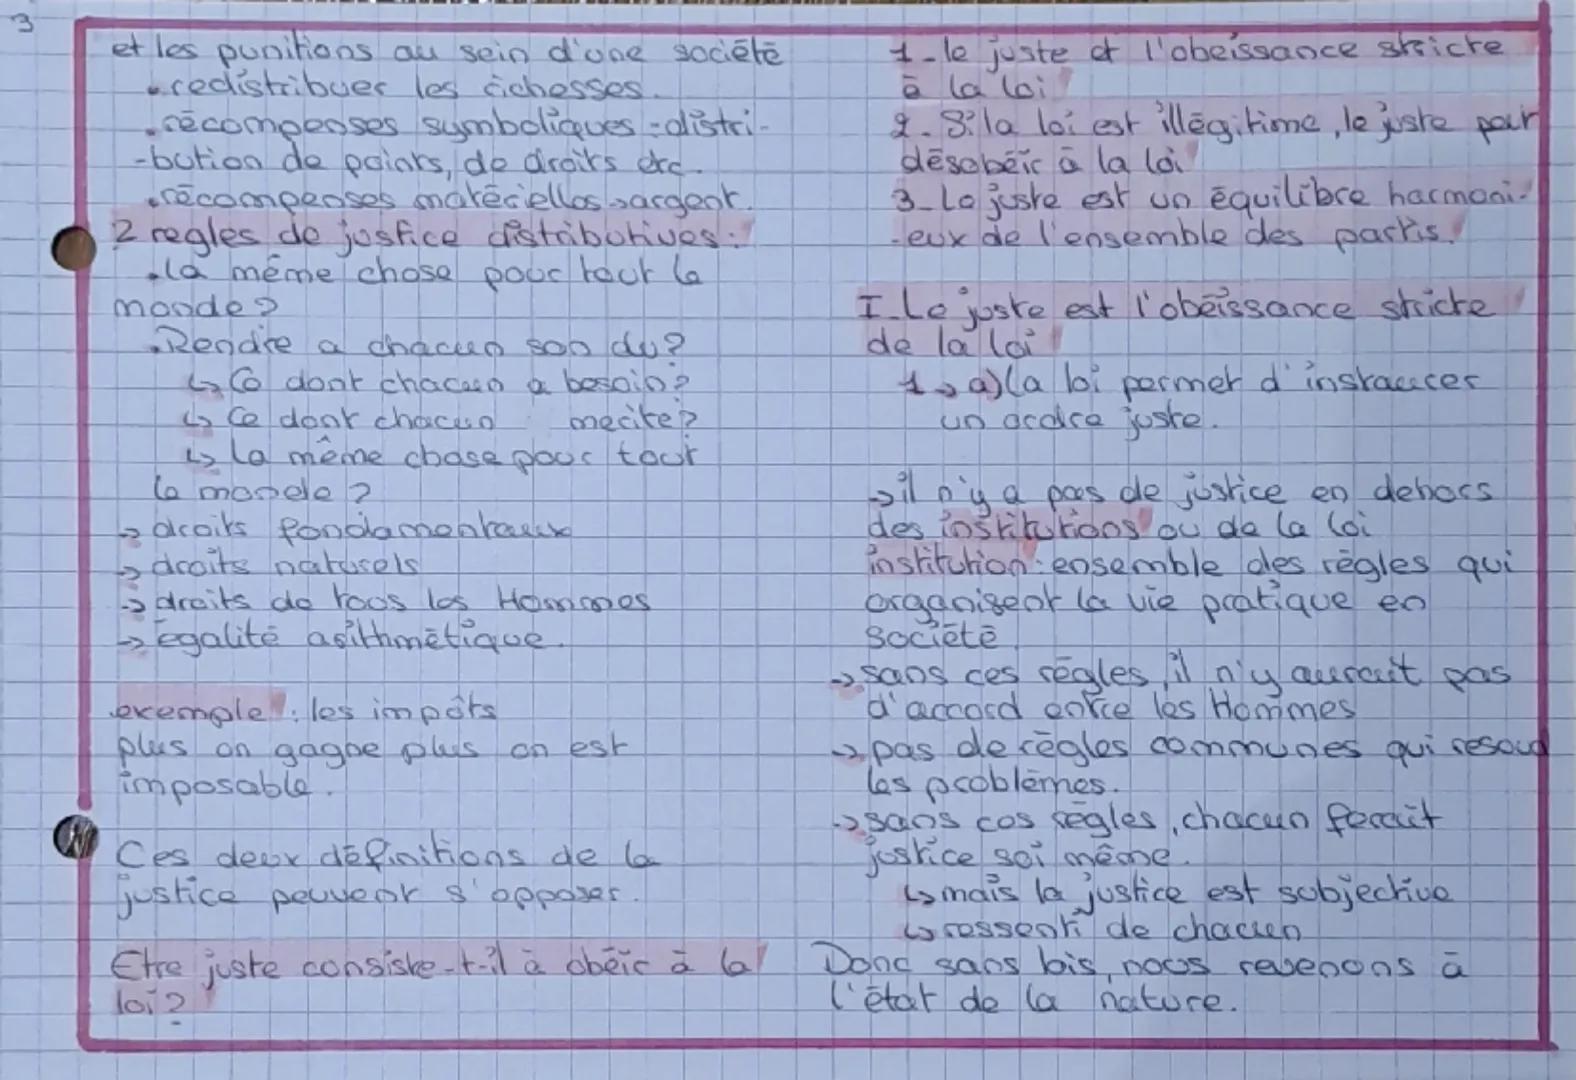 3
et les punitions au sein d'une société
• redistribuer les richesses.
• récompenses symboliques : distri-
-bution de points, de droits etc.
• récompenses matérielles → argent.
2 regles de justice distributives :
• la même chose pour tout le
monde ?
• Rendre a chacun son du ?
↳ Ce dont chacun a besoin ?
↳ Ce dont chacun mérite ?
↳ La même chose pour tout
le monde ?
→ droits fondamentaux
→ droits naturels
→ droits de tous les Hommes
→ égalité arithmétique.
exemple : les impôts
plus on gagne plus on est
imposable.
Ces deux définitions de la
justice peuvent s'opposer.
Etre juste consiste-t-il à obéir à la
loi ?
1 - le juste et l'obeissance stricte
à la loi
2 - Si la loi est illégitime, le juste peut
désobéir à la loi
3 - Le juste est un équilibre harmoni-
-eux de l'ensemble des partis.
I - Le juste est l'obéissance stricte
de la loi
1 → a) La loi permet d'instaurer
un ordre juste.
→ il n'y a pas de justice en dehors
des institutions ou de la loi
institution : ensemble des règles qui
organisent la vie pratique en
société
→ sans ces règles, il n'y aurait pas
d'accord entre les Hommes
→ pas de règles communes qui resoud
les problèmes.
→ sans ces règles, chacun ferait
justice soi même.
↳ mais la justice est subjective
↳ ressenti de chacun
Donc sans lois, nous revenons à
l'état de la nature.